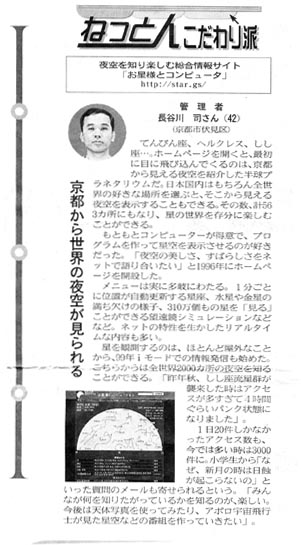 ねっとんこだわり派
夜空を知り楽しむ総合情報サイト
「お星様とコンピュータ」
http://star.gs/
管理者
長谷川 司さん(42)
(京都市伏見区)
京都から世界の夜空が見られる
てんびん座、ヘルクレス、しし
座…。ホームページを開くと、最初
に目に飛び込んでくるのは、京都
から見える夜空を紹介した半球プ
ラネタリウムだ。日本国内はもちろん全世
界の好きな場所を選ぶと、そこから見える
夜空を表示することもできる。その数、計56
3カ所にもなり、星の世界を存分に楽しむ
ことができる。
もともとコンピューターが得意で、プロ
グラムを作って星空を表示させるのが好き
だった。「夜空の美しさ、すばらしさをネ
ットで語り合いたい」と1996年にホームペ
ージを開設した。
メニューは実に多岐にわたる。1分ごと
に位置が自動更新する星座、水星や金星の
満ち欠けの様子、310万個もの星を「見る」
ことができる望遠鏡シミュレーションなど
など。ネットの特性を生かしたリアルタイ
ムな内容も多い。
星を観測するのは、ほとんど屋外なこと
から、99年iモードでの情報発信も始めた。
こちらからは全世界2000カ所の夜空を知る
ことができる。「昨年秋、しし座流星群が
襲来した時はアクセ
スが多すぎて4時間
ぐらいパンク状態に
なりました」。
1日20件しかなか
ったアクセス数も、
今では多い時は3000
件に。小学生から「な
ぜ、新月の時は日蝕
が起こらないの」と
いった質問のメールも寄せられるという。「みん
なが何を知りたがっているかを知るのが、楽しい。
今後は天体写真を使ってみたり、アポロ宇宙飛行
士が見た星空などの番組を作っていきたい」。